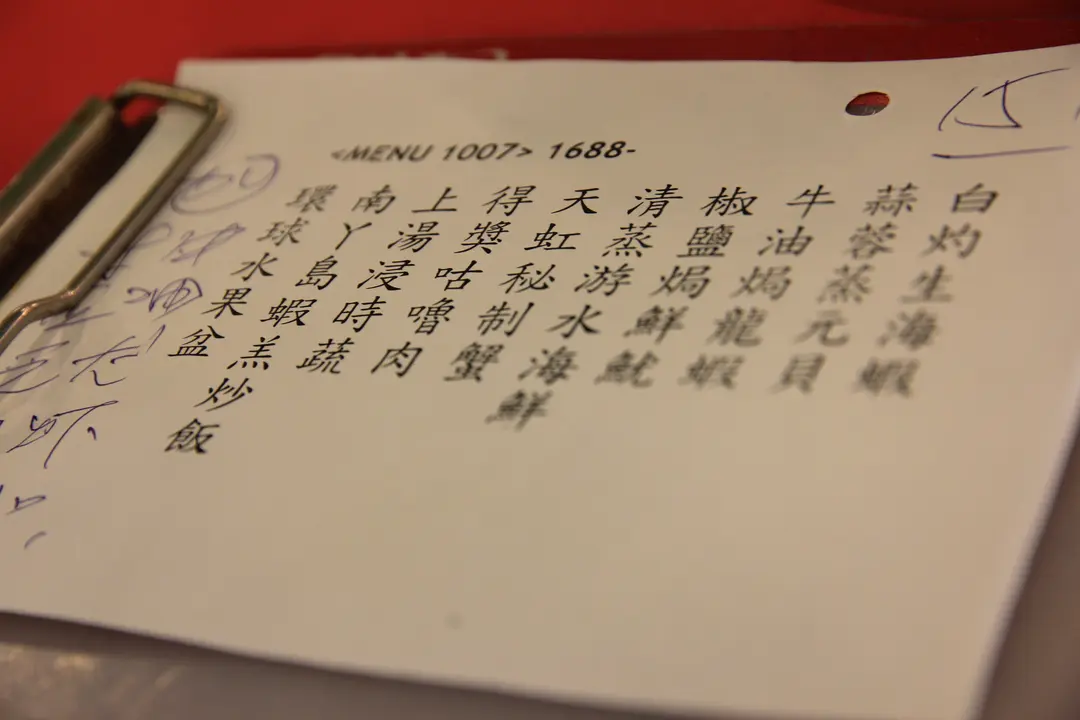 15
<MENU 1007> 1688-
白灼生海蝦
蒜蓉蒸元貝
牛油焗龍蝦
椒鹽焗鮮魷
清蒸游水海鮮
天虹秘制蟹
得獎咕嚕肉
上湯浸時蔬
南丫島蝦羔炒飯
環球水果盆